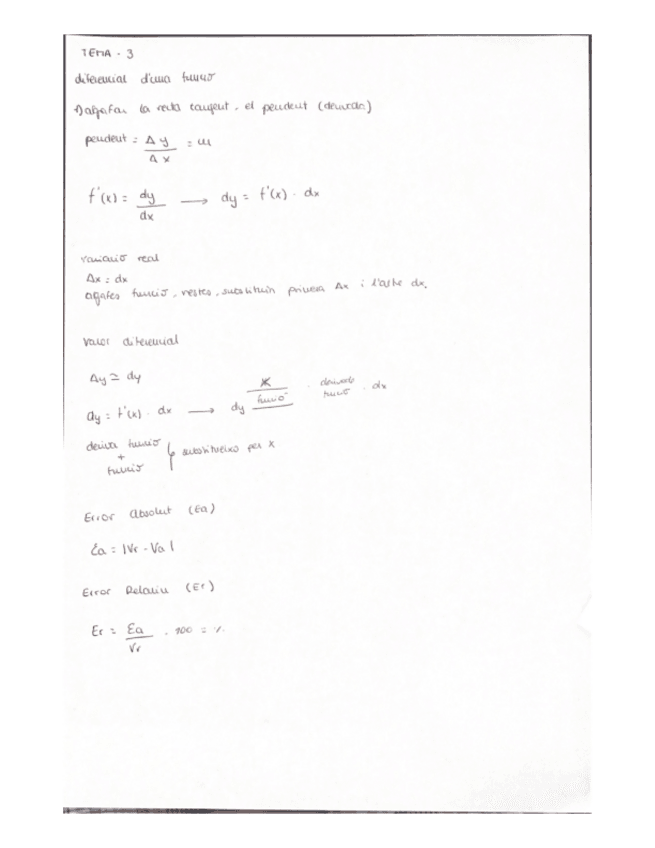 TEMA - 3
diferencial d'una funció
agafar la recta tangent, el pendent (derivada)
pendent = Δy / Δx = m
f'(x) = dy / dx → dy = f'(x) · dx
variació real
Δx = dx
agafes funció, restes, substituïn primera Δx i l'altre dx.
Valor diferencial
Δy ≃ dy
dy = f'(x) · dx → dy x / funció · derivada funció · dx
deriva funció + funció substitueixo per x
Error Absolut (Ea)
Ea = |Vr - Va|
Error Relatiu (Er)
Er = Ea / Vr · 100 = %